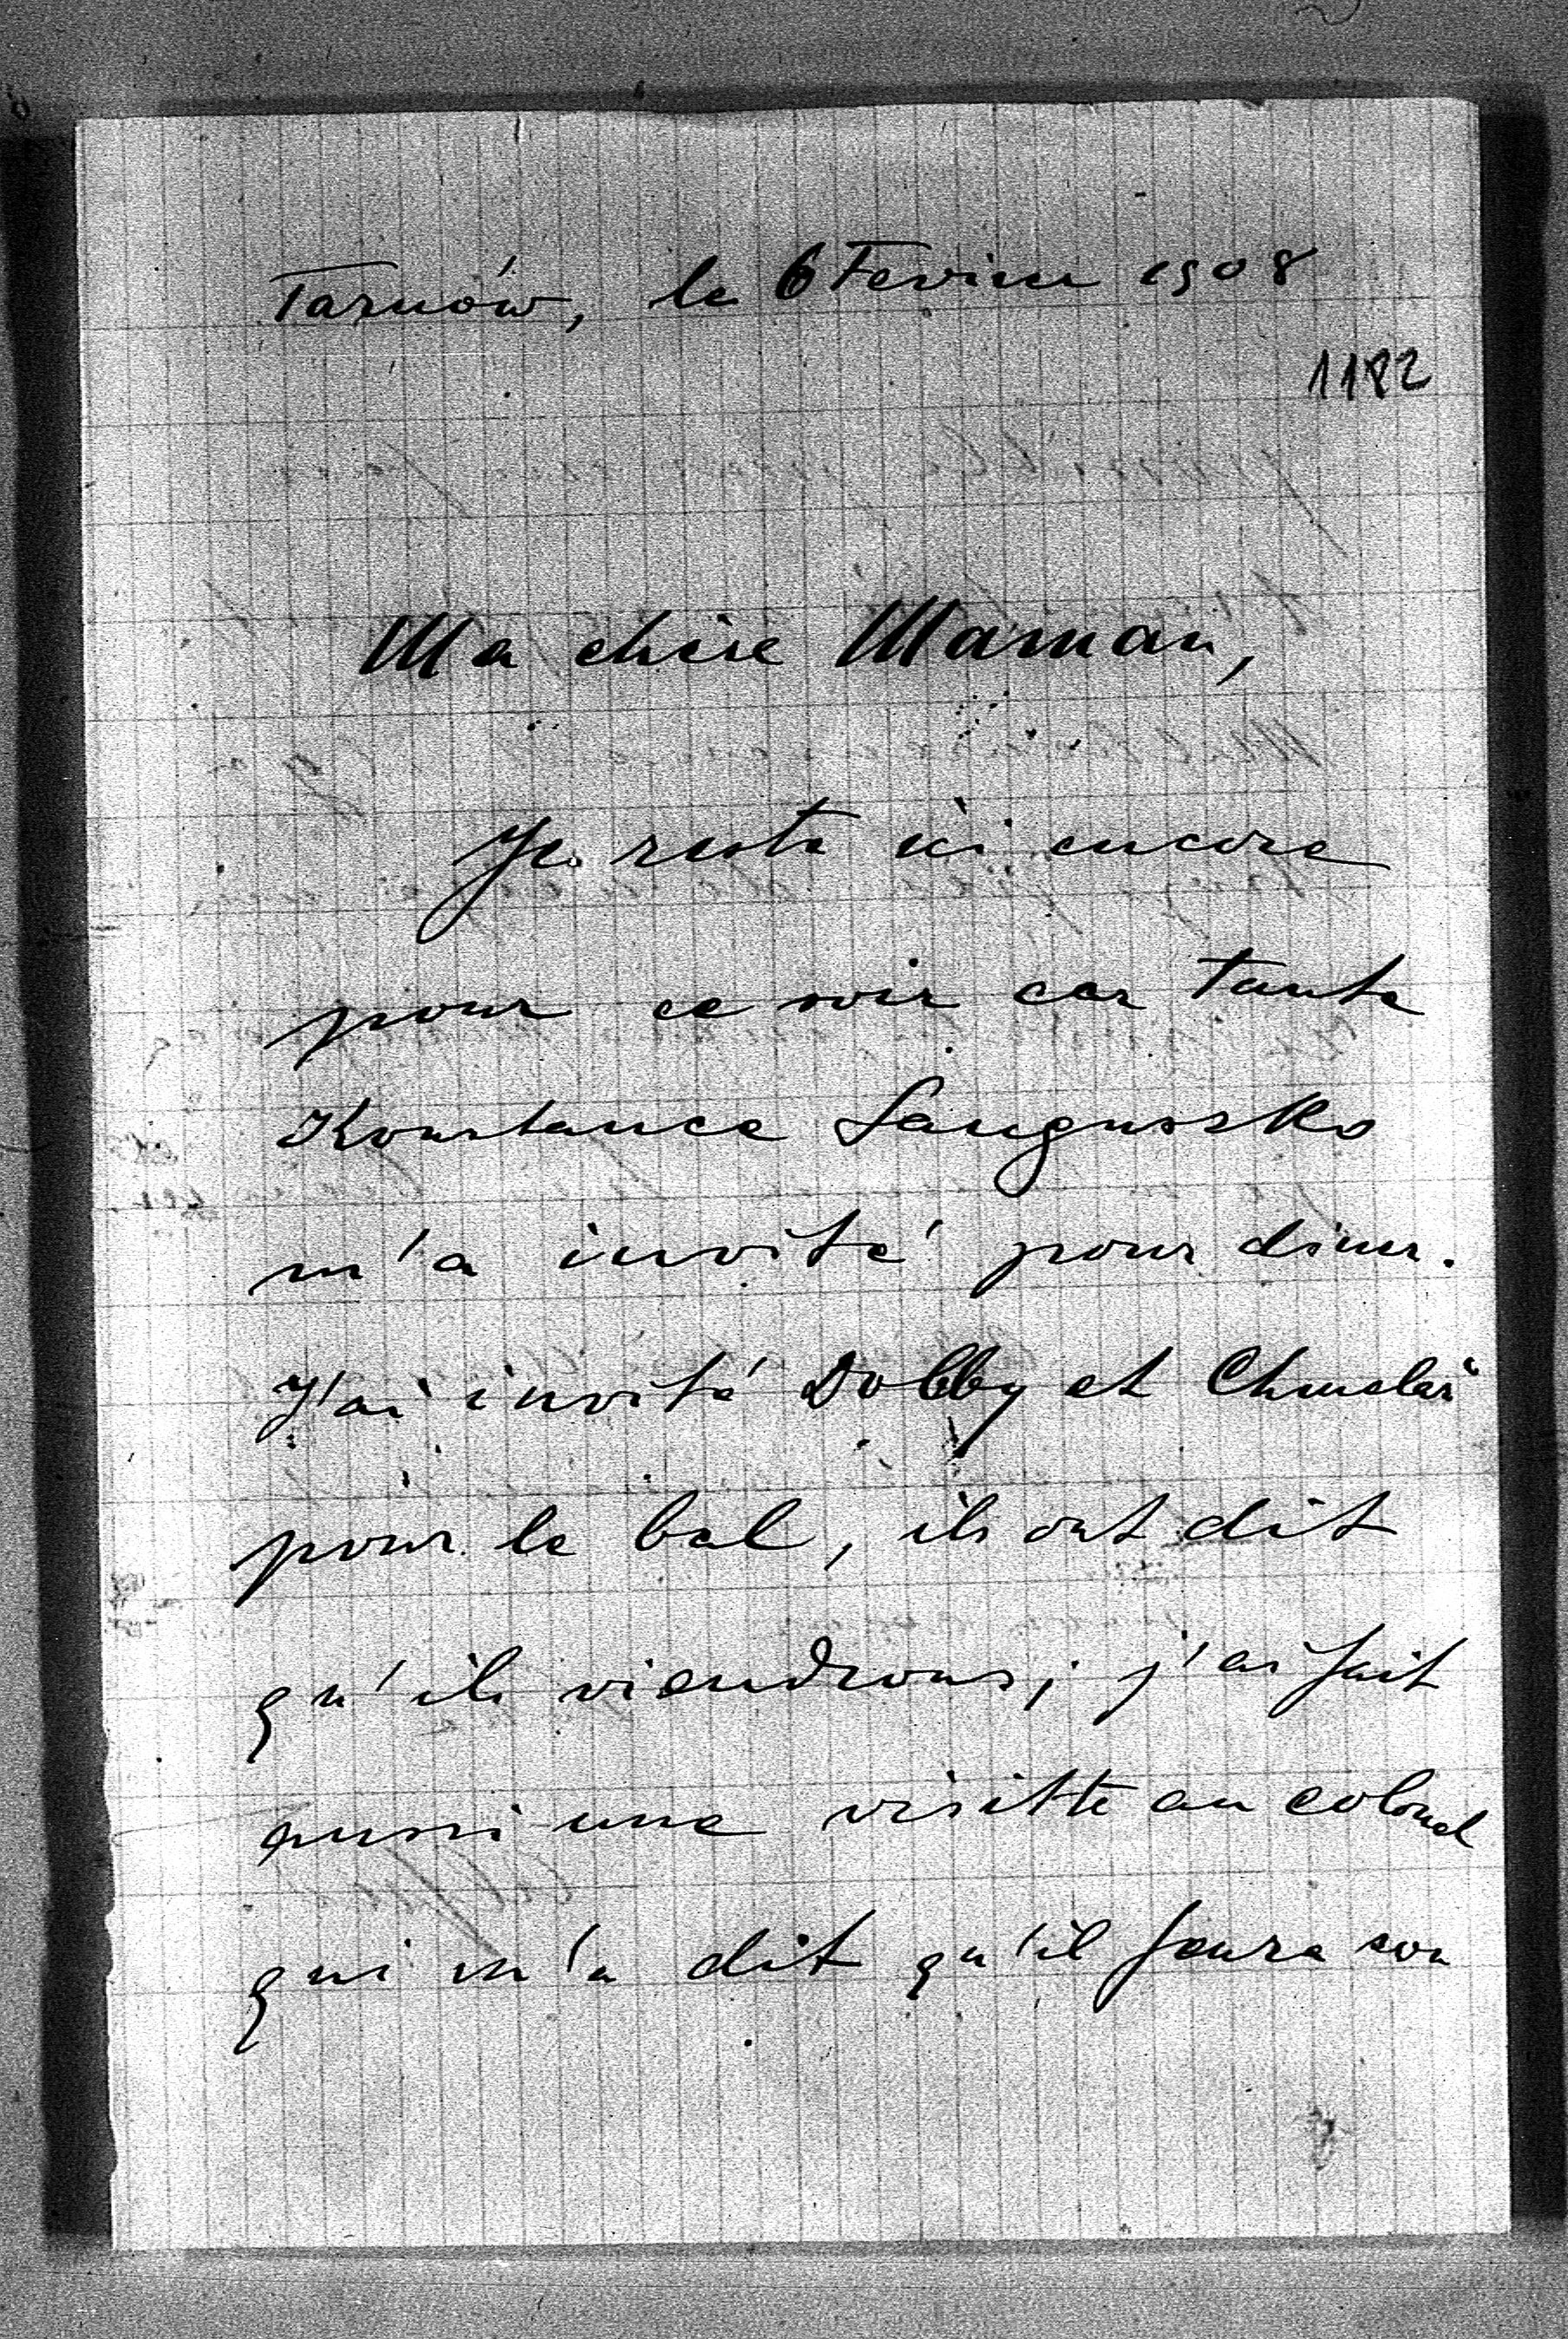 Tarnów, le 6 Fevrier 1908
1182
Ma chère Maman,
Je reste ici encore
pour ce soir car tante
Konstance Sanguszko
m'a invité pour diner.
J'ai invité Dobby et
pour le bal, ils ont dit
qu'ils viendrons; j'ai fait
aussi une visitte au colonel
qui m'a dit qu'il fera son